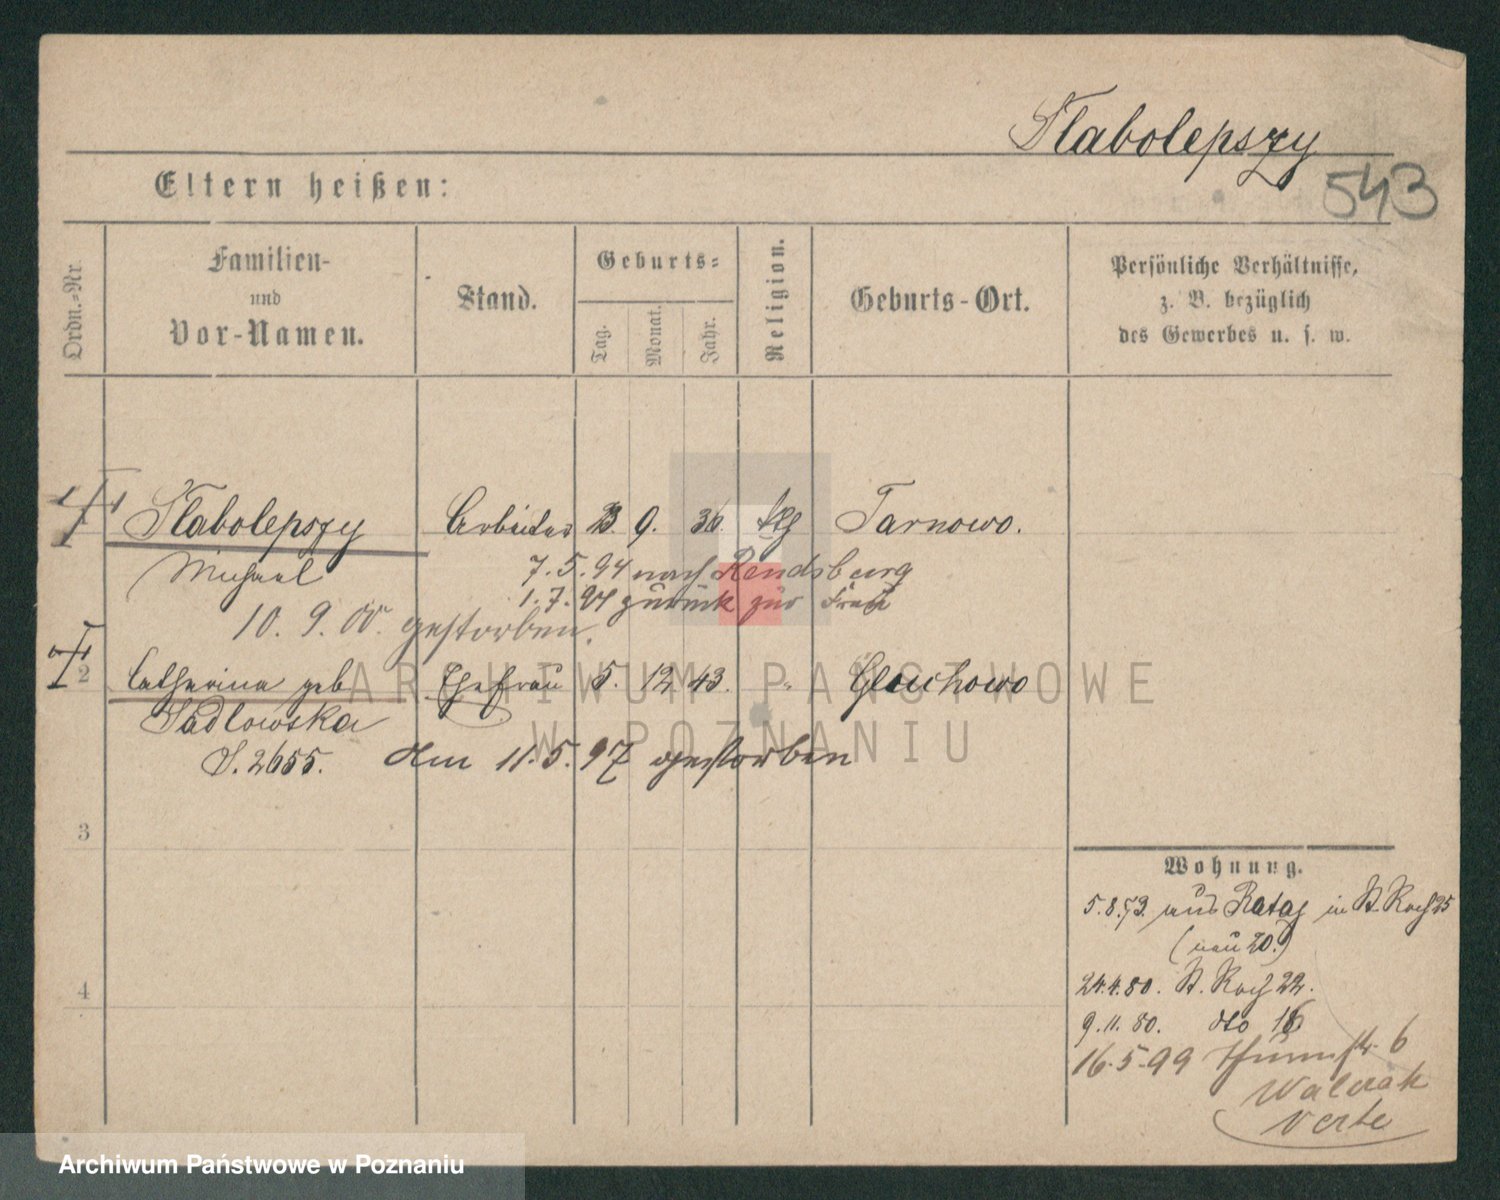 Slabolepszy
543
Eltern heißen:
Ordn.-Nr.
Familien-
und
Vor-Namen.
Stand.
Geburts-
Tag.
Monat.
Jahr.
Religion.
Geburts-Ort.
Persönliche Verhältnisse,
z. B. bezüglich
des Gewerbes u. s. w.
Slabolepszy Arbeiter 9. 36. ktg Tarnowo.
Michael 7.5.94 nach Rendsburg
1.7.94 zurück zur Frau
10. 9. 00. gestorben.
2 Catharina geb Ehefrau 5. 12 43. " Gluchowo
Sadlowska
S. 2655. am 11.5.97 gestorben
3
4
Wohnung.
5.8.73. aus Rataj in St. Roch 25
(neu 20.)
24.4.80. St. Roch 22.
9.11.80. dto 16
16.5.99 Thurmstr. 6
Walczak
verte
ARCHIWUM PAŃSTWOWE
W POZNANIU
Archiwum Państwowe w Poznaniu